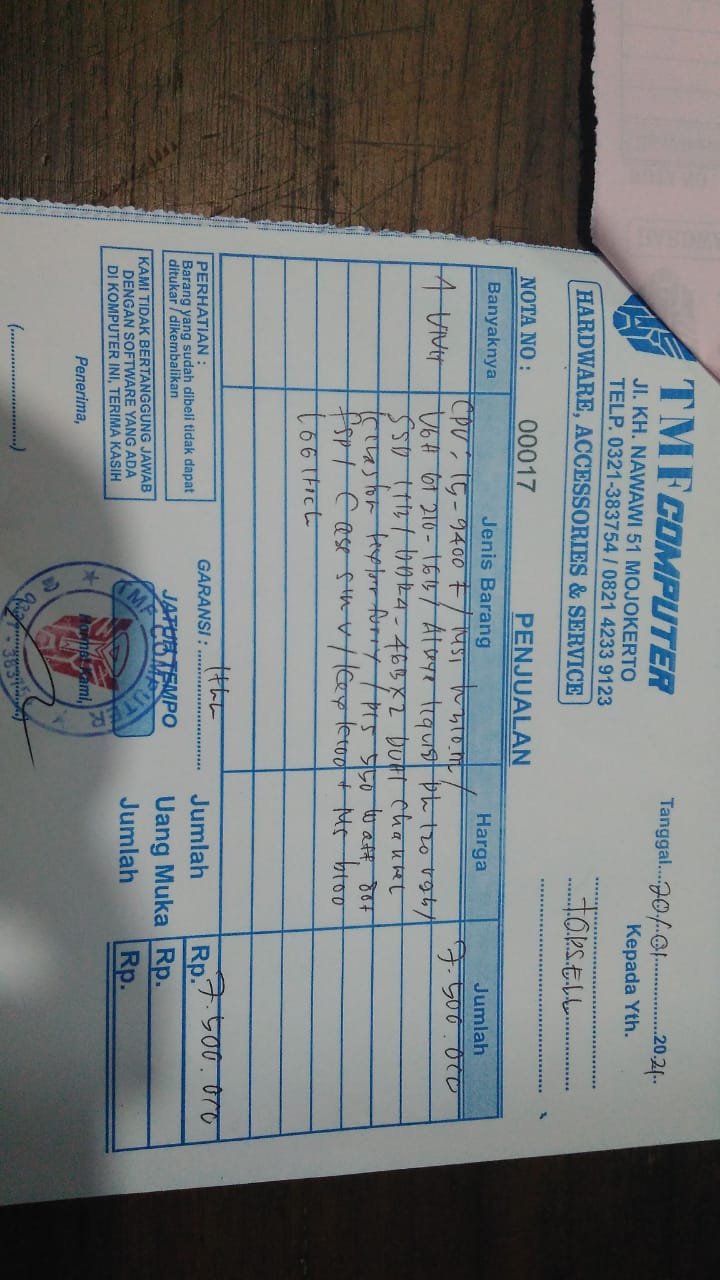 TMF COMPUTER
Jl. KH. NAWAWI 51 MOJOKERTO
TELP. 0321-383754 / 0821 4233 9123
HARDWARE, ACCESSORIES & SERVICE
Tanggal....20/01...........2021..
Kepada Yth.
TOPSELL
NOTA NO : 00017 PENJUALAN
Banyaknya Jenis Barang Harga Jumlah
1 Unit CPU : i5-9400 F / MSI / 7.500.000
VGA GT 210 - 1GB / liquid rgb /
SSD 1TB / DDR4 - 4GB x 2 Dual channel
/ 550 Watt 80+
FSP / Case + Ms
Logitech
PERHATIAN :
Barang yang sudah dibeli tidak dapat
ditukar / dikembalikan
KAMI TIDAK BERTANGGUNG JAWAB
DENGAN SOFTWARE YANG ADA
DI KOMPUTER INI, TERIMA KASIH
GARANSI : 1 th
JATUH TEMPO
Jumlah Rp. 7.500.000
Uang Muka Rp.
Jumlah Rp.
Penerima,
Hormat Kami,
(.........................)